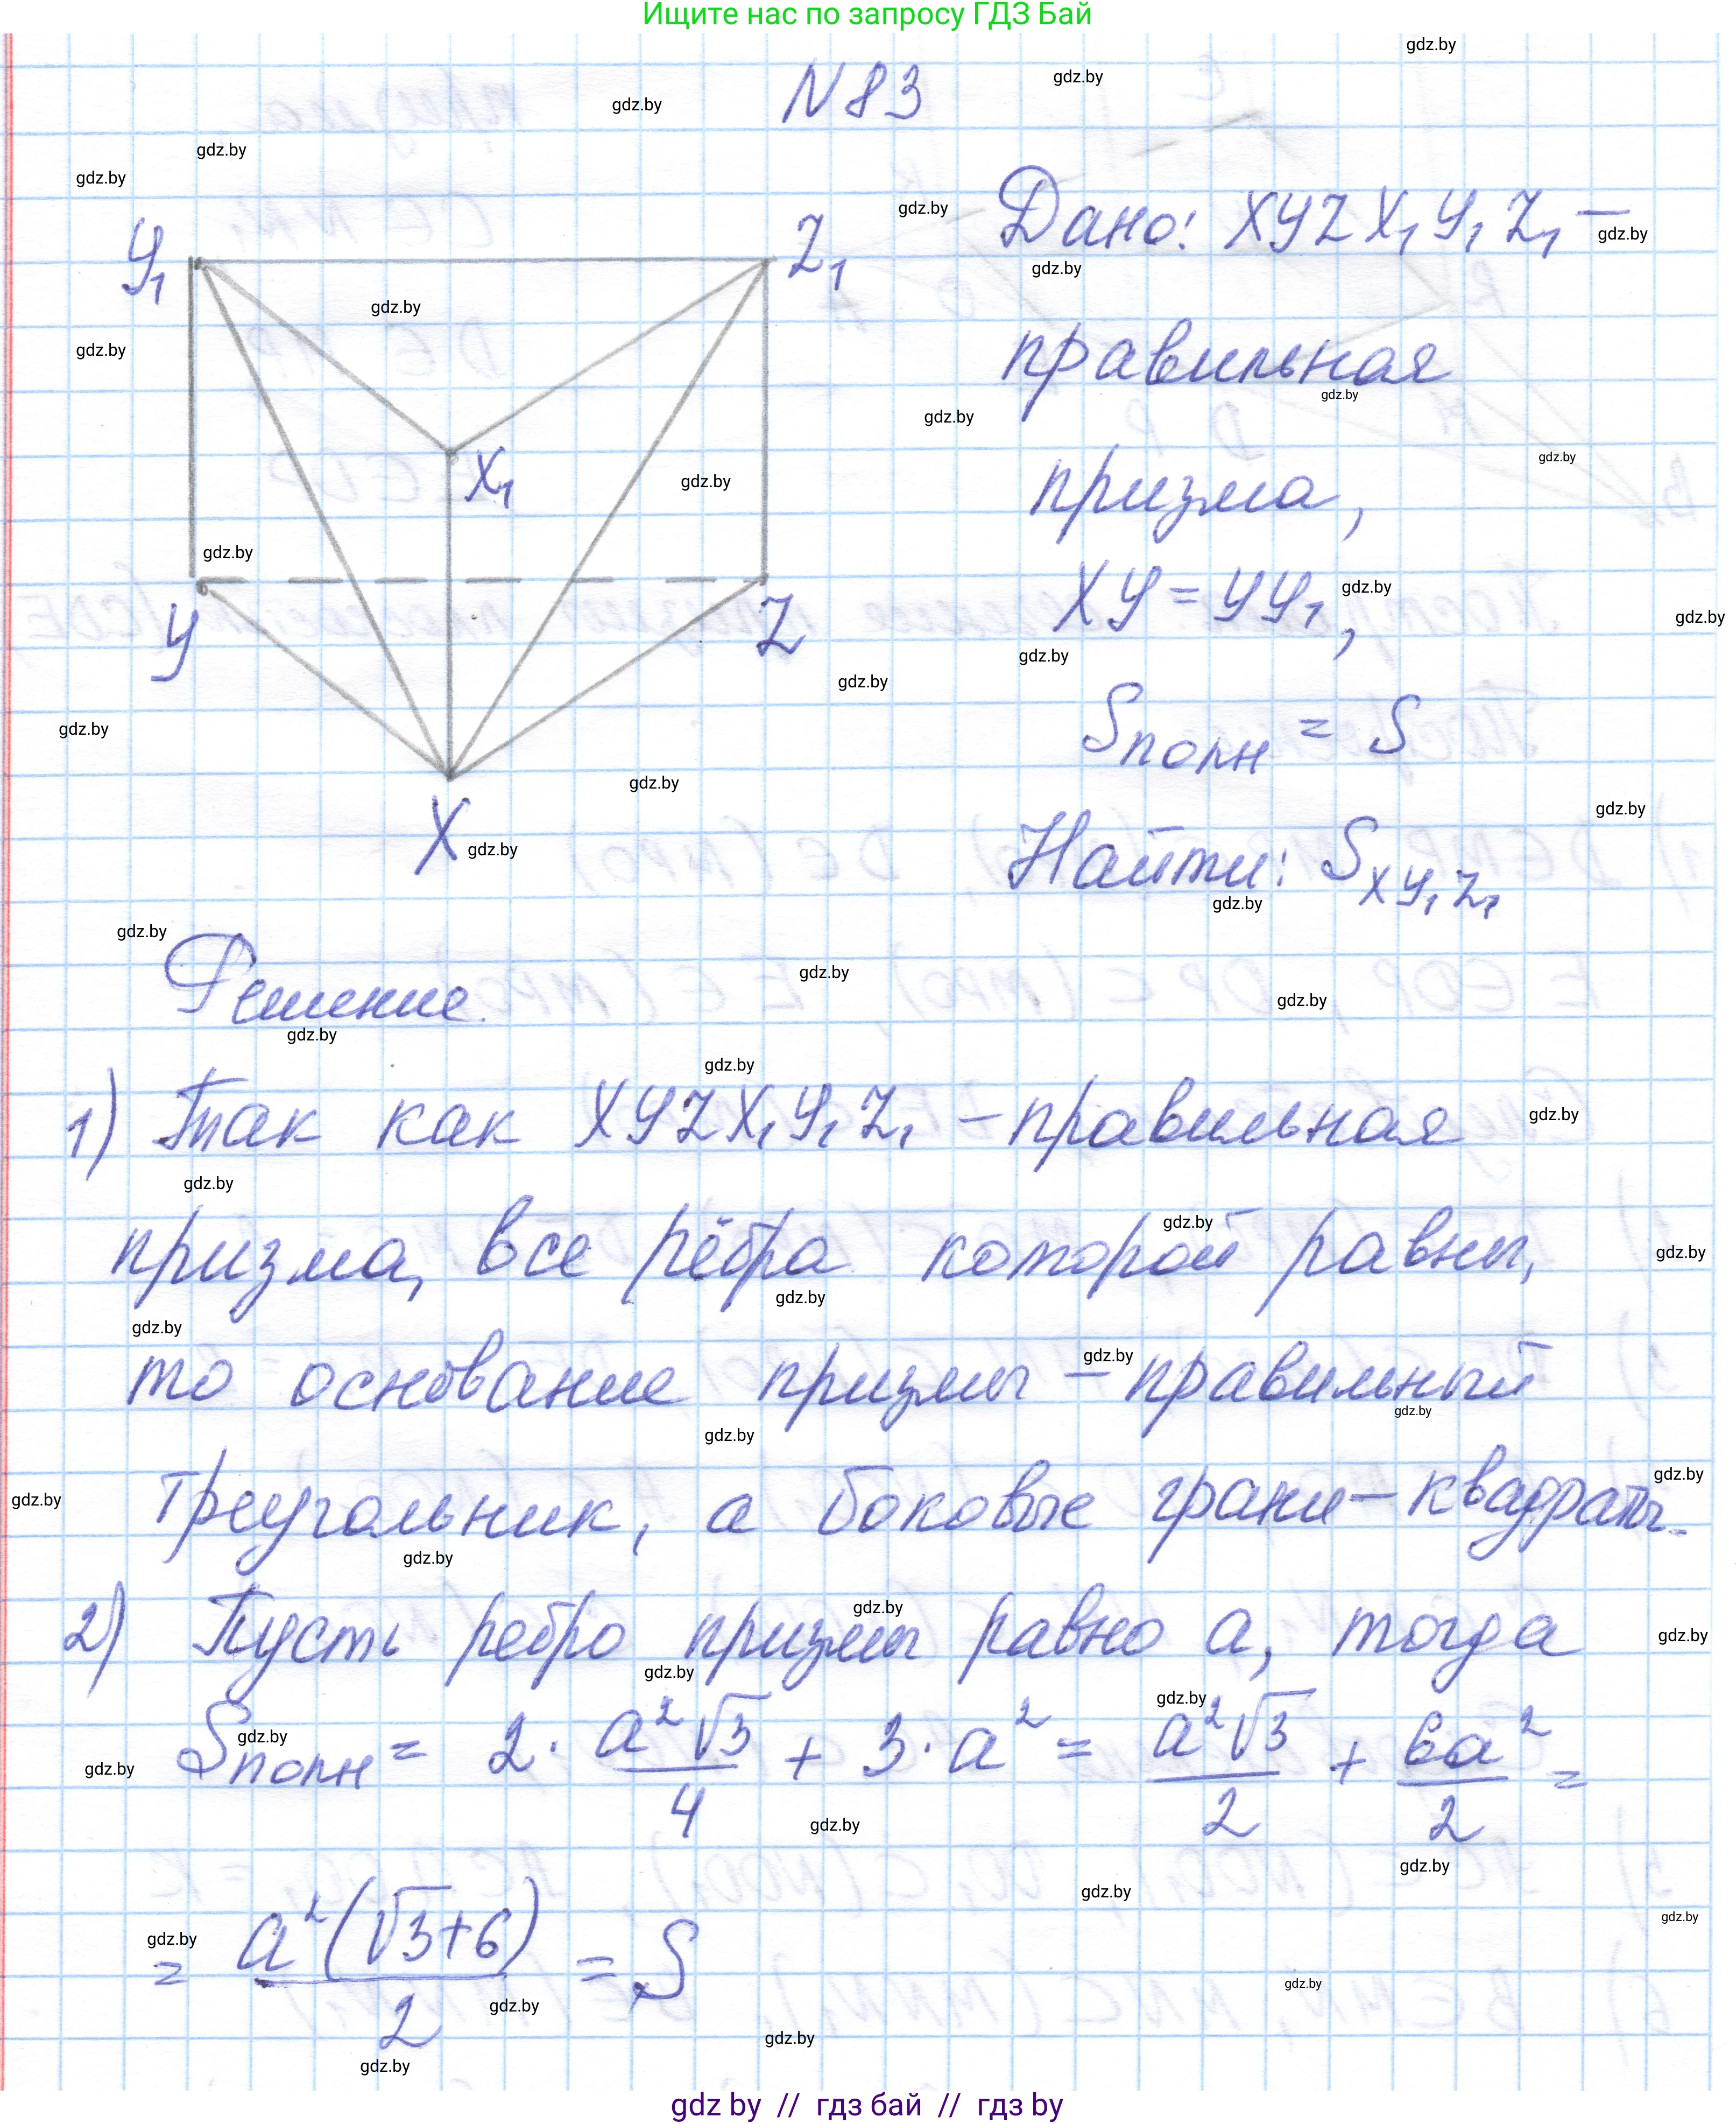 Ищите нас по запросу ГДЗ Бай
N 83
Y₁
Z₁
X₁
Y
Z
X
Дано: XYZX₁Y₁Z₁ –
правильная
призма,
XY = YY₁,
Sполн = S
Найти: S_XY₁Z₁
Решение.
1) Так как XYZX₁Y₁Z₁ – правильная
призма, все рёбра которой равны,
то основание призмы – правильный
треугольник, а боковые грани – квадраты.
2) Пусть ребро призмы равно a, тогда
Sполн = 2 · a²√3/4 + 3 · a² = a²√3/2 + 6a²/2 =
= a²(√3+6)/2 = S
gdz by // гдз бай // гдз by
gdz.by